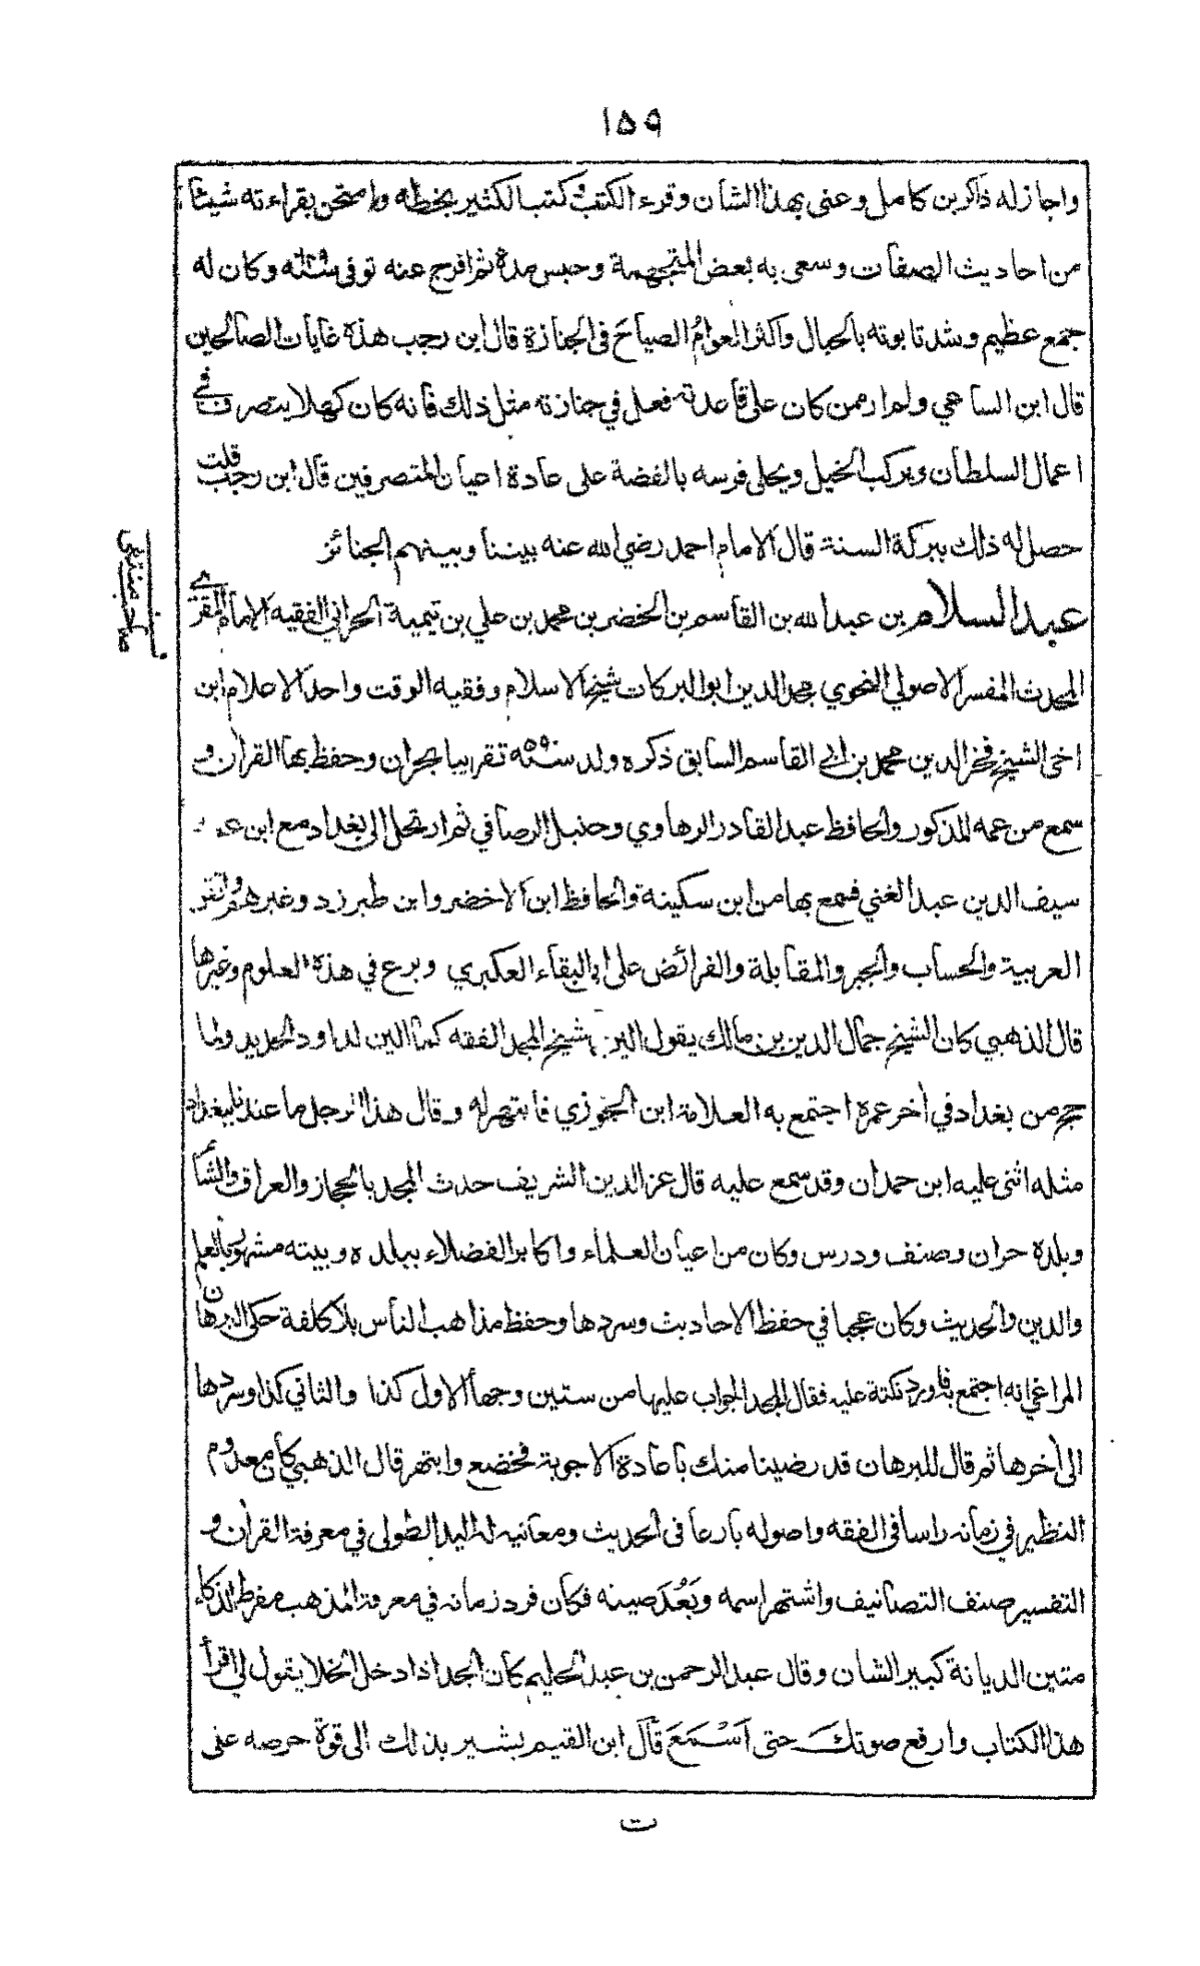 ١٥٩
واجاز له ذاكر بن كامل وعنى بهذا الشان وقرء الكتب وكتب الكثير بخطه وامتحن بقراءته شيئا
من احاديث الصفات وسعى به بعض المتجهمة وحبس مدة ثم افرج عنه توفى سنة وكان له
جمع عظيم وشد تابوته بالحبال واكثر العوامُ الصياحَ فى الجنازة قال ابن رجب هذه غايات الصالحين
قال ابن الساعي ولم ار ممن كان على قاعدته فعل في جنازته مثل ذلك فانه كان كهلا يتصرف في
اعمال السلطان ويركب الخيل ويحلى فرسه بالفضة على عادة اعيان المتصرفين قال ابن رجب قلت
حصل له ذلك ببركة السنة قال الامام احمد رضي الله عنه بيننا وبينهم الجنائز
عبد السلام بن عبد الله بن القاسم بن الخضر بن محمد بن علي بن تيمية الحراني الفقيه الامام المقرئ
المحدث المفسر الاصولي النحوي مجد الدين ابو البركات شيخ الاسلام وفقيه الوقت واحد الاعلام ابن
اخى الشيخ فخر الدين محمد بن ابي القاسم السابق ذكره ولد سنة ٥٩٠ تقريبا بحران وحفظ بها القرآن و
سمع من عمه المذكور والحافظ عبد القادر الرهاوي وحنبل الرصافي ثم ارتحل الى بغداد مع ابن عمه
سيف الدين عبد الغني فسمع بها من ابن سكينة والحافظ ابن الاخضر وابن طبرزد وغيرهم
العربية والحساب والجبر والمقابلة والفرائض على ابي البقاء العكبري وبرع في هذه العلوم وغيرها
قال الذهبي كان الشيخ جمال الدين بن مالك يقول الين للشيخ المجد الفقه كما الين لداود الحديد ولما
حج من بغداد في أخر عمره اجتمع به العلامة ابن الجوزي فانبهر له وقال هذا الرجل ما عندنا ببغداد
مثله اثنى عليه ابن حمدان وقد سمع عليه قال عز الدين الشريف حدث المجد بالحجاز والعراق والشأم
وبلده حران وصنف ودرس وكان من اعيان العلماء واكابر الفضلاء ببلده وبيته مشهور بالعلم
والدين والحديث وكان عجبا في حفظ الاحاديث وسردها وحفظ مذاهب الناس بلا كلفة حكى البرهان
المراغي انه اجتمع به فاورد نكتة عليه فقال المجد الجواب عليها من ستين وجها الاول كذا والثاني كذا وسردها
الى أخرها ثم قال للبرهان قد رضينا منك باعادة الاجوبة فخضع وابتهر قال الذهبي كان معدوم
النظير في زمانه راسا فى الفقه واصوله بارعا فى الحديث ومعانيه له اليد الطولى في معرفة القرأن و
التفسير صنف التصانيف واشتهر اسمه وبَعُدَ صيته فكان فرد زمانه في معرفة المذهب مفرط الذكاء
متين الديانة كبير الشان وقال عبد الرحمن بن عبد الحليم كان الجد اذا دخل الخلا يقول لي اقرأ
هذا الكتاب وارفع صوتك حتى اَسْمَعَ قال ابن القيم يشير بذلك الى قوة حرصه على
ت